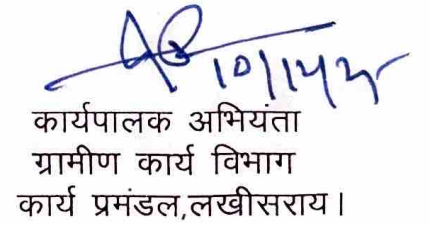 10/12/25
कार्यपालक अभियंता
ग्रामीण कार्य विभाग
कार्य प्रमंडल,लखीसराय।